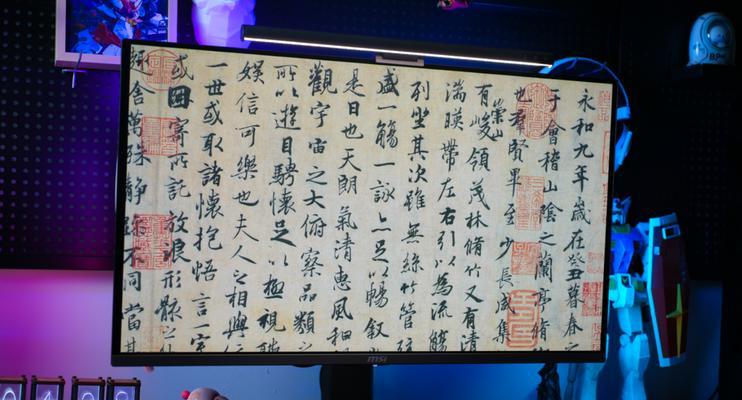 永和九年歲在癸丑暮春之
于會稽山陰之蘭亭脩
也羣賢畢至少長咸集
有崇山峻領茂林脩竹又有清
湍暎帶左右引以為流觴
列坐其次雖無絲竹管弦
盛一觴一詠亦足以暢敘
是日也天朗氣清惠風和
觀宇宙之大俯察品類之
所以遊目騁懷足以極視聽
娛信可樂也夫人之相與
一世或取諸懷抱悟言一室
或因寄所託放浪形骸之
舍萬殊靜躁不同當其
msi